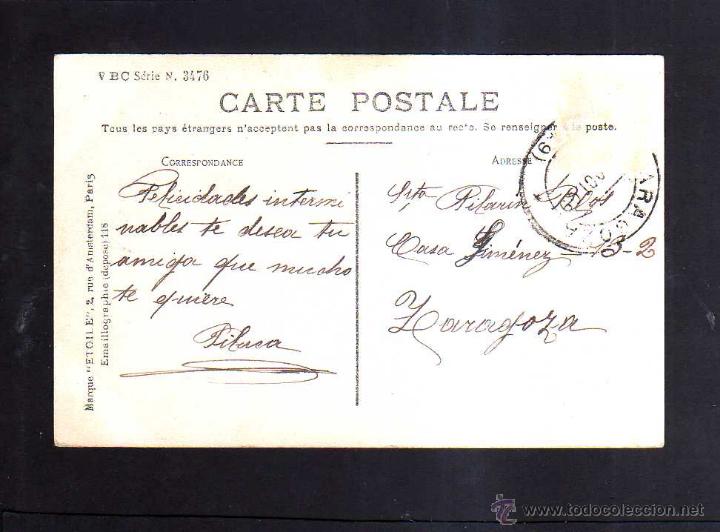 V BC Série N. 3476
CARTE POSTALE
Tous les pays étrangers n'acceptent pas la correspondance au recto. Se renseigner à la poste.
CORRESPONDANCE
Felicidades intermi
nables te desea tu
amiga que mucho
te quiere
Piluca
ADRESSE
Srta Pilarin
Casa Giménez - 13-2
Zaragoza
Marque "ETOILE", 2, rue d'Amsterdam, Paris
Emaillographie (déposé) 118
www.todocoleccion.net